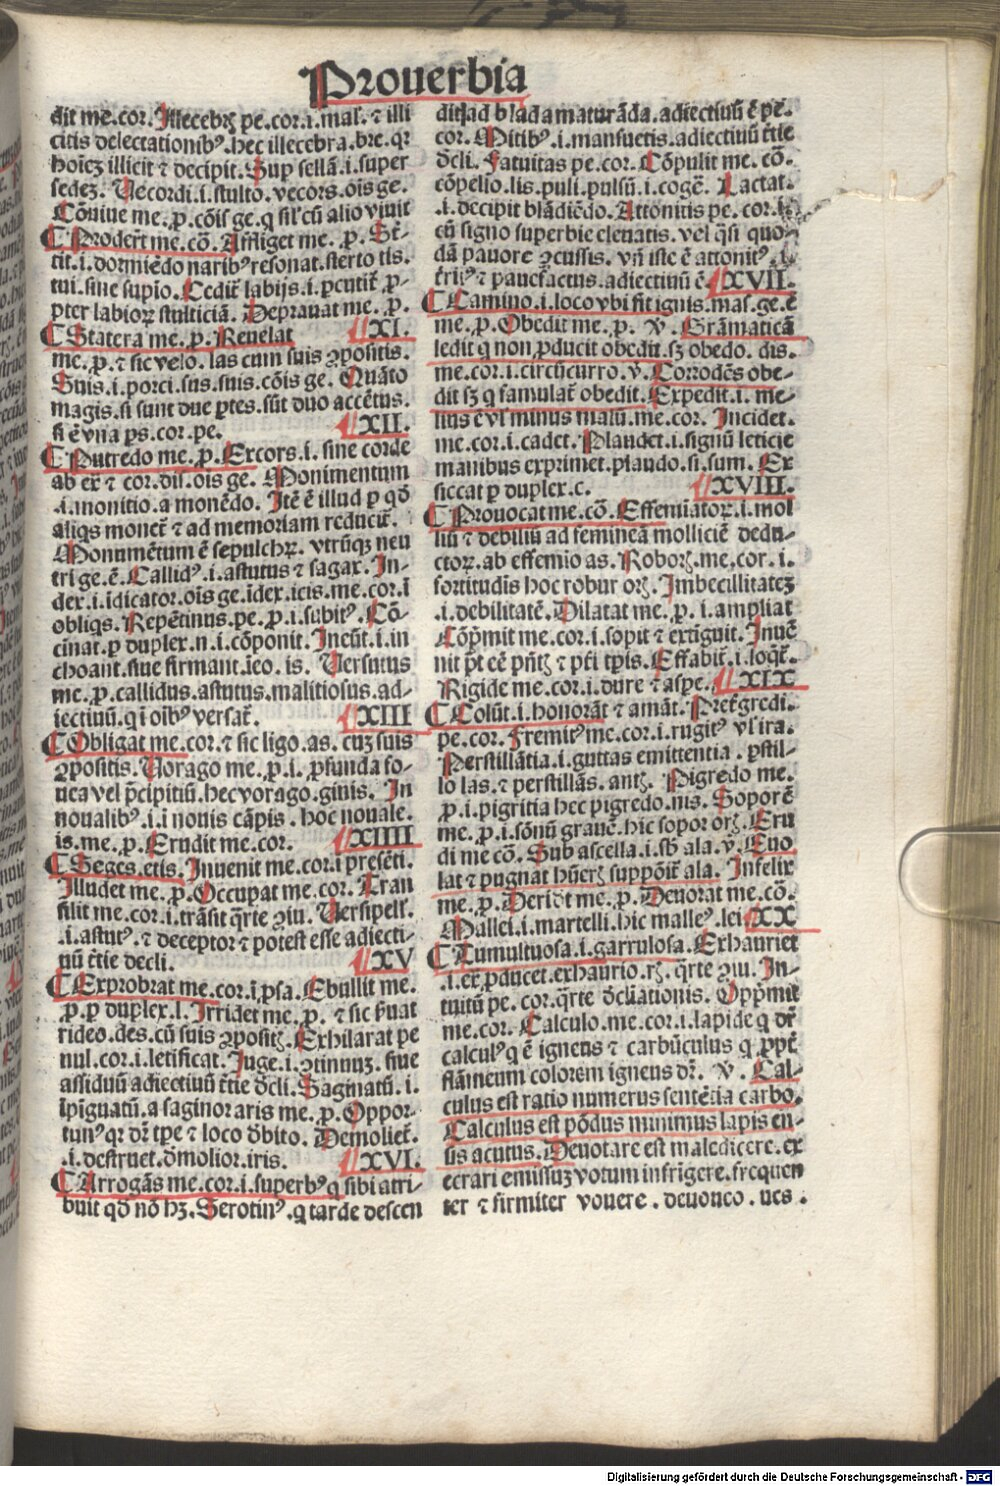 Prouerbia
dit me.cor. Illecebrꝭ pe.cor.i.mal. ⁊ illi
citis delectationibꝰ.hec illecebra.bre.qꝛ
hoīeꝫ illicit ⁊ decipit. Sup sellā.i.super
sedeꝫ. Vecordi.i.stulto.vecors.oīs ge.
Cōniue me.p.cōis ge.q sil' cū alio viuit
Proderit me.cō. Affliget me.p. Ster
tit.i.dormiēdo naribꝰ resonat.sterto tis.
tui.siue supīo. Cedit labijs.i.pcutit p̄
pter labioꝝ stulticiā. Deprauat me.p.
Statera me.p. Reuelat XI.
me.p.⁊ sic velo.las cum suis ꝯpositis.
Suis.i.porci.sus.suis.cōis ge. Quāto
magis.si sunt due ptes.sūt duo accētus.
si ē vna ps.cor.pe. XII.
Putredo me.p. Excors.i.sine corde
ab ex ⁊ cor.dis.oīs ge. Monimentum
.i.monitio.a monēdo. Itē ē illud p qd̄
aliqs monet ⁊ ad memoriam reducit.
Monumētum ē sepulchꝝ. vtrūqꝫ neu
tri ge.ē. Callidꝰ.i.astutus ⁊ sagax. In-
dex.i.īdicator.oīs ge.īdex.icis.me.cor.ī
obliqs. Repētinus.pe.p.i.subitꝰ. Cō-
cinat.p duplex.n.i.cōponit. Ineūt.i.in
choant.siue firmant.īeo.is. Versutus
me.p.callidus.astutus.malitiosus.ad-
iectiuū.qꝛ ī oībꝰ versat. XIII
Obligat me.cor.⁊ sic ligo.as.cuꝫ suis
ꝯpositis. Vorago me.p.i.pfunda fo-
uea vel p̄cipitiū.hec vorago.ginis. In
noualibꝰ.i.ī nouis cāpis. hoc nouale.
is.me.p. Erudit me.cor. XIIII
Seges.etis. Inuenit me.cor.i presēti.
Illudet me.p. Occupat me.cor. Tran
silit me.cor.i.trāsit q̄rte ꝯiu. Versipell'.
.i.astutꝰ.⁊ deceptor ⁊ potest esse adiecti-
uū t̄tie decli. XV
Exprobrat me.cor.i psa. Ebullit me.
p.p duplex.l. Irridet me.p. ⁊ sic fuat
rideo.des.cū suis ꝯpositꝭ. Exhilarat pe
nul.cor.i.letificat. Iuge.i.ꝯtinuuꝫ.siue
assiduū adiectiuū t̄tie d̄cli. Saginatū.i.
īpīguatū.a saginor aris me.p. Oppor-
tunꝰ qꝛ dr̄ tpe ⁊ loco d̄bito. Demoliet.
.i.destruet.d̄molior.iris. XVI.
Arrogās me.cor.i.superbꝰ q sibi atri-
buit qd̄ nō hꝫ. Serotinꝰ.q tarde descen
dit ad blada maturāda.adiectiuū ē pe.
cor. Mitibꝰ.i.mansuetis.adiectiuū t̄tie
d̄cli. Fatuitas pe.cor. Cōpulit me.cō.
cōpello.lis.puli.pulsū.i.cogē. Lactat.
.i.decipit blādiēdo. Attonitis pe.cor.i.
cū signo superbie eleuatis.vel q̄si quo-
dā pauore ꝯcussis. vn̄ iste ē attonitꝰ.i.
t̄ritꝰ ⁊ pauefactus.adiectiuū ē. XVII.
Camino.i.loco vbi fit ignis.mas.ge.ē
me.p. Obedit me.p. v. Grāmatica
ledit q non pducit obedit.sꝫ obedo. dis.
me.cor.i.circūcurro.v. Corrodēs obe-
dit sꝫ q famulat obedit. Expedit.i.me-
lius ē vl' minus malū.me.cor. Incidet.
me.cor.i.cadet. Plaudet.i.signū leticie
manibus exprimet.plaudo.si.sum. Ex
siccat p duplex.c. XVIII.
Prouocat me.cō. Effeminatoꝝ.i.mol
liū ⁊ debiliū ad femineā molliciē dedu-
ctoꝝ.ab effemio as. Roborꝭ.me.cor.i.
fortitudīs hoc robur orꝭ. Imbecillitateꝫ
.i.debilitatē. Dilatat me.p.i.ampliat
Cōp̄mit me.cor.i.sopit ⁊ extiguit. Inuē
nit p̄t eē p̄ntꝭ ⁊ pfi tpis. Effabit.i.loqt.
Rigide me.cor.i.dure ⁊ aspe. XIX
Colūt.i.honorāt ⁊ amāt. Pret̄gredi.
pe.cor. Fremitꝰ me.cor.i.rugitꝰ vl' ira.
Perstillātia.i.guttas emittentia. pstil-
lo las.⁊ perstillās.antꝭ. Pigredo me.
p.i.pigritia hec pigredo.nis. Soporē
me.p.i.sōnū grauē.hic sopor orꝭ. Eru
di me cō. Sub ascella.i.sb̄ ala.v. Euo
lat ⁊ pugnat hūerꝭ suppōit ala. Infelix
me.p. Deridet me.p. Deuorat me.cō.
Mallei.i.martelli.hic malleꝰ.lei XX
Tumultuosa.i.garrulosa. Exhauriet
.i.ex pducet.exhaurio.rꝭ.q̄rte ꝯiu. In-
tuitū pe.cor.q̄rte d̄cliationis. Opp̄mit
me.cor. Calculo.me.cor.i.lapide q dr̄
calculꝰ q ē igneus ⁊ carbūculus q ppt
flāmeum colorem igneus dr̄. v. Cal-
culus est ratio numerus sentētia carbo.
Calculus est pōdus minimus lapis en-
sis acutus. Deuotare est maledicere.ex
ecrari emissuꝫ votum infrīgere.frequen
ter ⁊ firmiter vouere.deuoueo.ues.
Digitalisierung gefördert durch die Deutsche Forschungsgemeinschaft - DFG